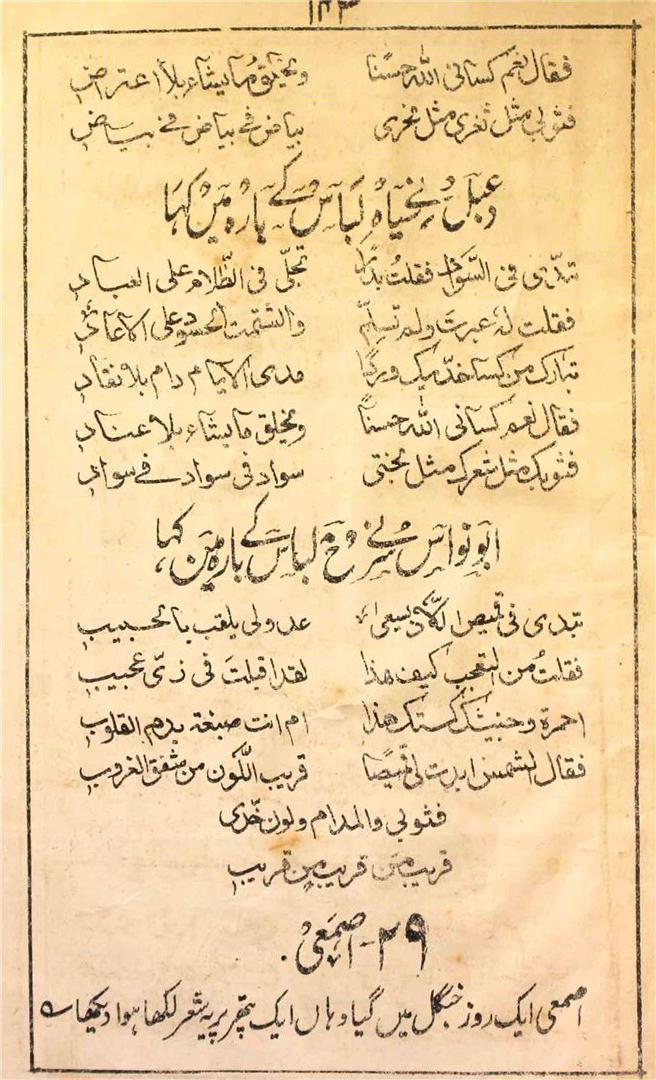 ۱۴۳
فقال نعم كسانى الله حسنًا ويخلق ما يشاء بلا اعتراض
فثوبى مثل ثغرى مثل نحرى بياض فى بياض فى بياض
دعبل نے سیاہ لباس کے بارہ میں کہا
تبدى فى السواد فقلت بدرًا تجلّى فى الظّلام على العباد
فقلت له عبرت ولم تسلّم واشتمت الحسود على الاعادى
تبارك من كسا خدّيك وردًا مدى الايام دام بلا نفاد
فقال نعم كسانى الله حسنًا ويخلق ما يشاء بلا عناد
فثوبك مثل شعرك مثل بختى سواد فى سواد فى سواد
ابو نواس نے سرخ لباس کے بارہ میں کہا
تبدى فى قميص اللاذ يسعى عدو لى يلقب بالحبيب
فقلت من التعجب كيف هذا لقد اقبلت فى زىّ عجيب
احمرة وجنتيك كستك هذا ام انت صبغته بدم القلوب
فقال الشمس اهدت لى قميصًا قريب اللّون من شفق الغروب
فثوبى والمدام ولون خدّى
قريب من قريب من قريب
۲۹- اصمعی
اصمعی ایک روز جنگل میں گیا وہاں ایک پتھر پر یہ شعر لکھا ہوا دیکھا ؎